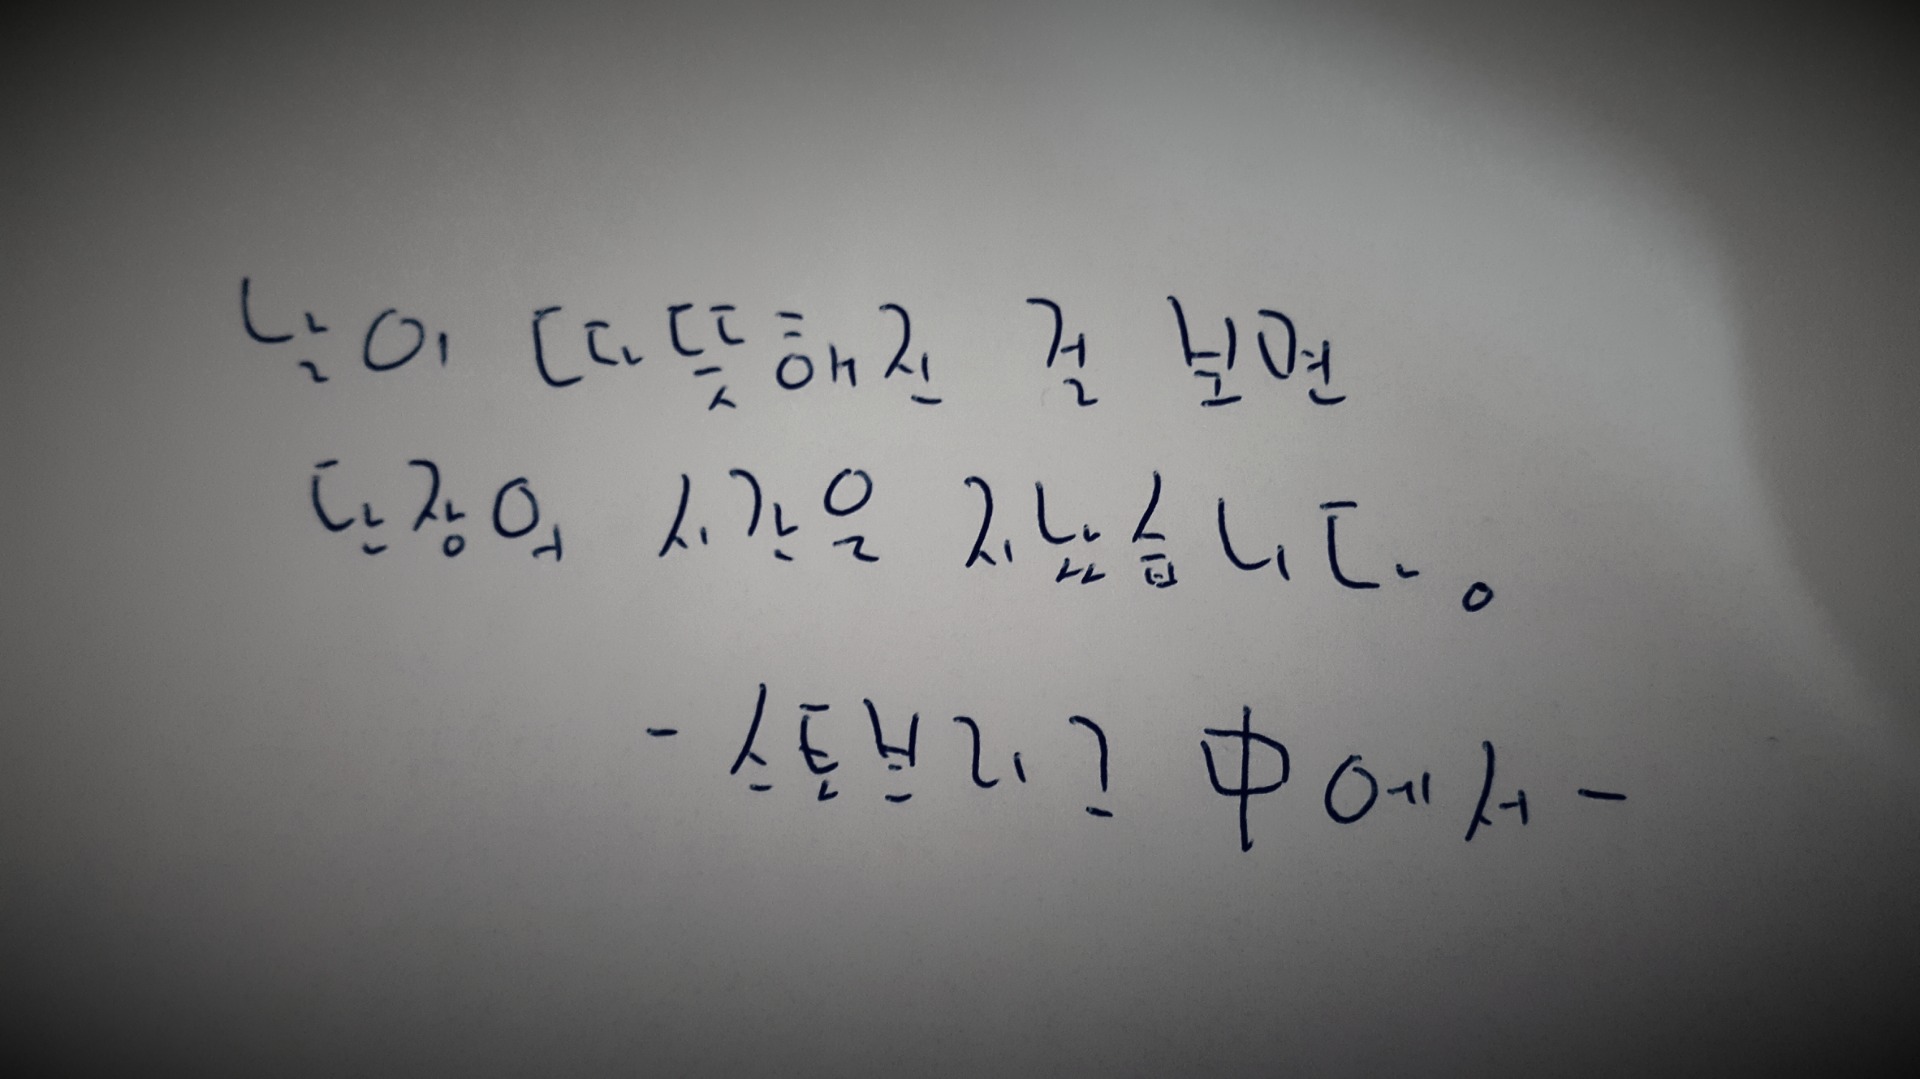 날이 따뜻해진 걸 보면
단장의 시간을 지났습니다.
- 스토브리그 中에서 -